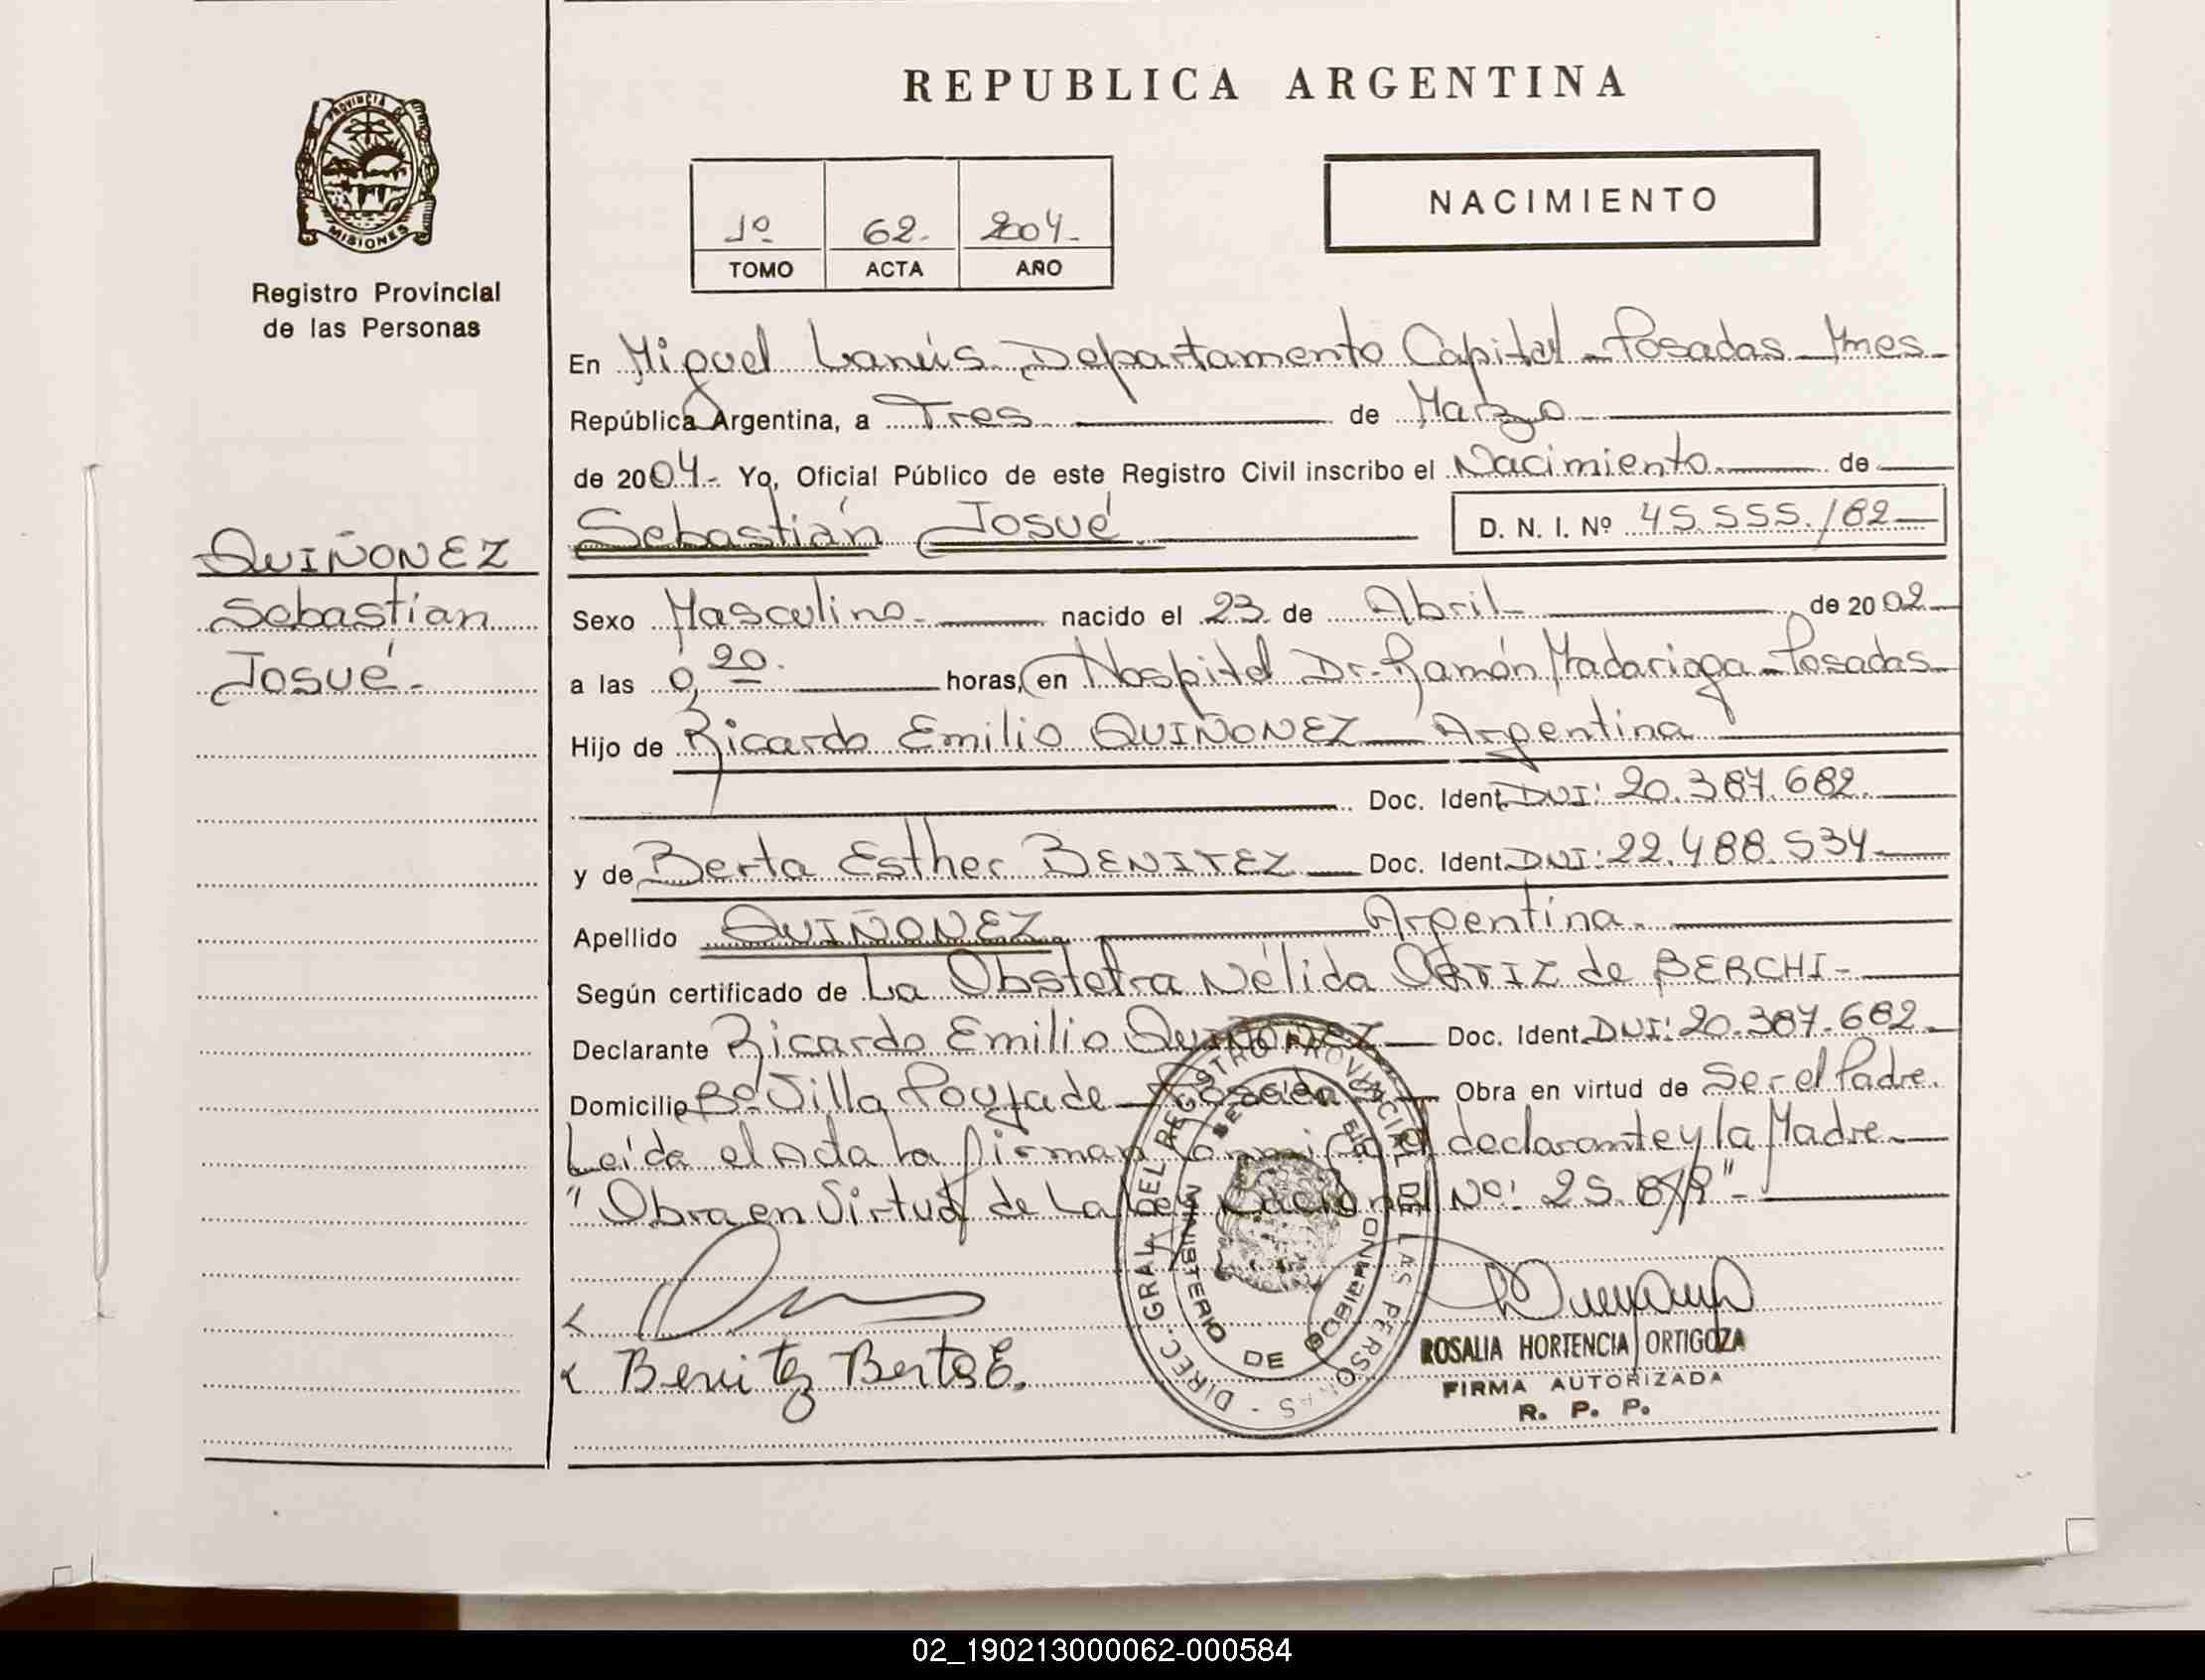 REPUBLICA ARGENTINA
PROVINCIA
MISIONES
Registro Provincial
de las Personas
1º 62. 2004.
TOMO ACTA AÑO
NACIMIENTO
En Miguel Lanús Departamento Capital - Posadas Mnes
República Argentina, a Tres de Marzo
de 2004. Yo, Oficial Público de este Registro Civil inscribo el Nacimiento de
Sebastián Josué D. N. I. Nº 45.555.182
QUIÑONEZ
Sebastian
Josué.
Sexo Masculino nacido el 23 de Abril de 2002
a las 0,20. horas, en Hospital Dr. Ramón Madariaga - Posadas
Hijo de Ricardo Emilio QUIÑONEZ Argentina
Doc. Ident. DNI: 20.387.682.
y de Berta Esther BENITEZ Doc. Ident. DNI: 22.488.534
Apellido QUIÑONEZ Argentina.
Según certificado de La Obstetra Nélida ORTIZ de BERCHI-
Declarante Ricardo Emilio QUIÑONEZ Doc. Ident. DNI: 20.387.682
Domicilio Bº Villa Poujade - Posadas Obra en virtud de Ser el Padre.
Leída el Acta la firman Conmigo el declarante y la Madre
"Obra en Virtud de La Ley Nacional Nº: 25.819"-
Benitez Berta E.
DIREC. GRAL. DEL REGISTRO PROVINCIAL DE LAS PERSONAS -
MINISTERIO DE GOBIERNO
ROSALIA HORTENCIA ORTIGOZA
FIRMA AUTORIZADA
R. P. P.
02_190213000062-000584